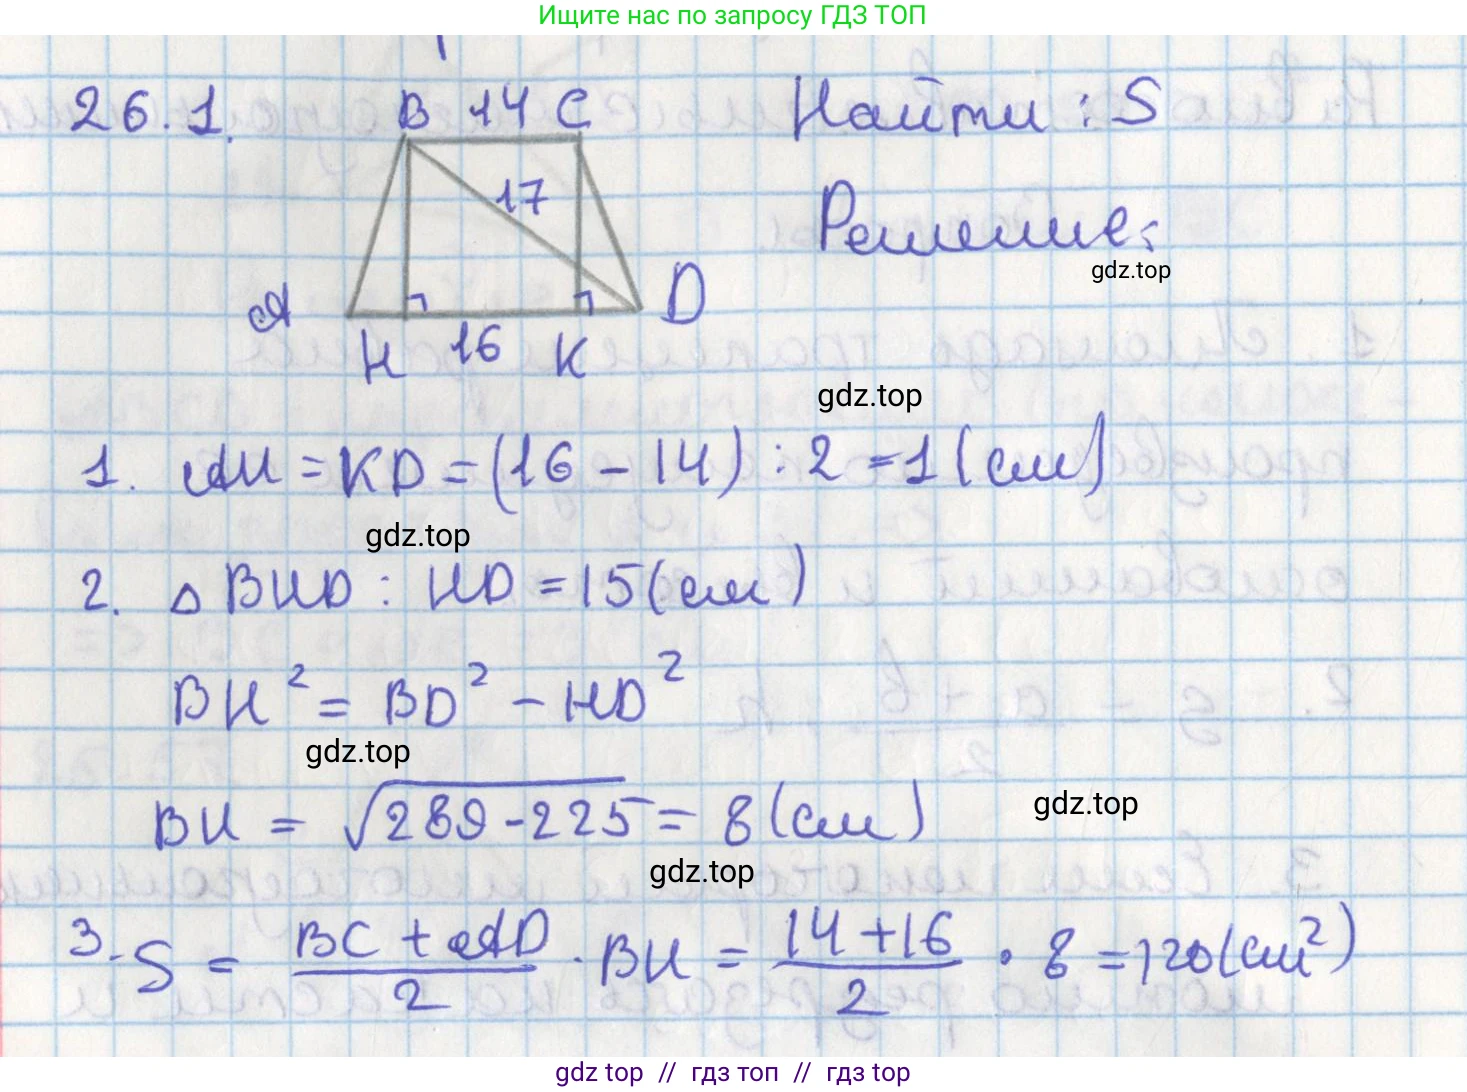 Ищите нас по запросу ГДЗ ТОП
26.1.
B 14 C
17
A
D
H 16 K
Найти : S
Решение:
gdz.top
gdz.top
1. AH = KD = (16 - 14) : 2 = 1 (см)
gdz.top
2. △ BHD : HD = 15 (см)
BH² = BD² - HD²
gdz.top
BH = √289-225 = 8 (см)
gdz.top
gdz.top
3. S = BC + AD / 2 · BH = 14 + 16 / 2 · 8 = 120 (см²)
gdz.top // гдз топ // гдз top